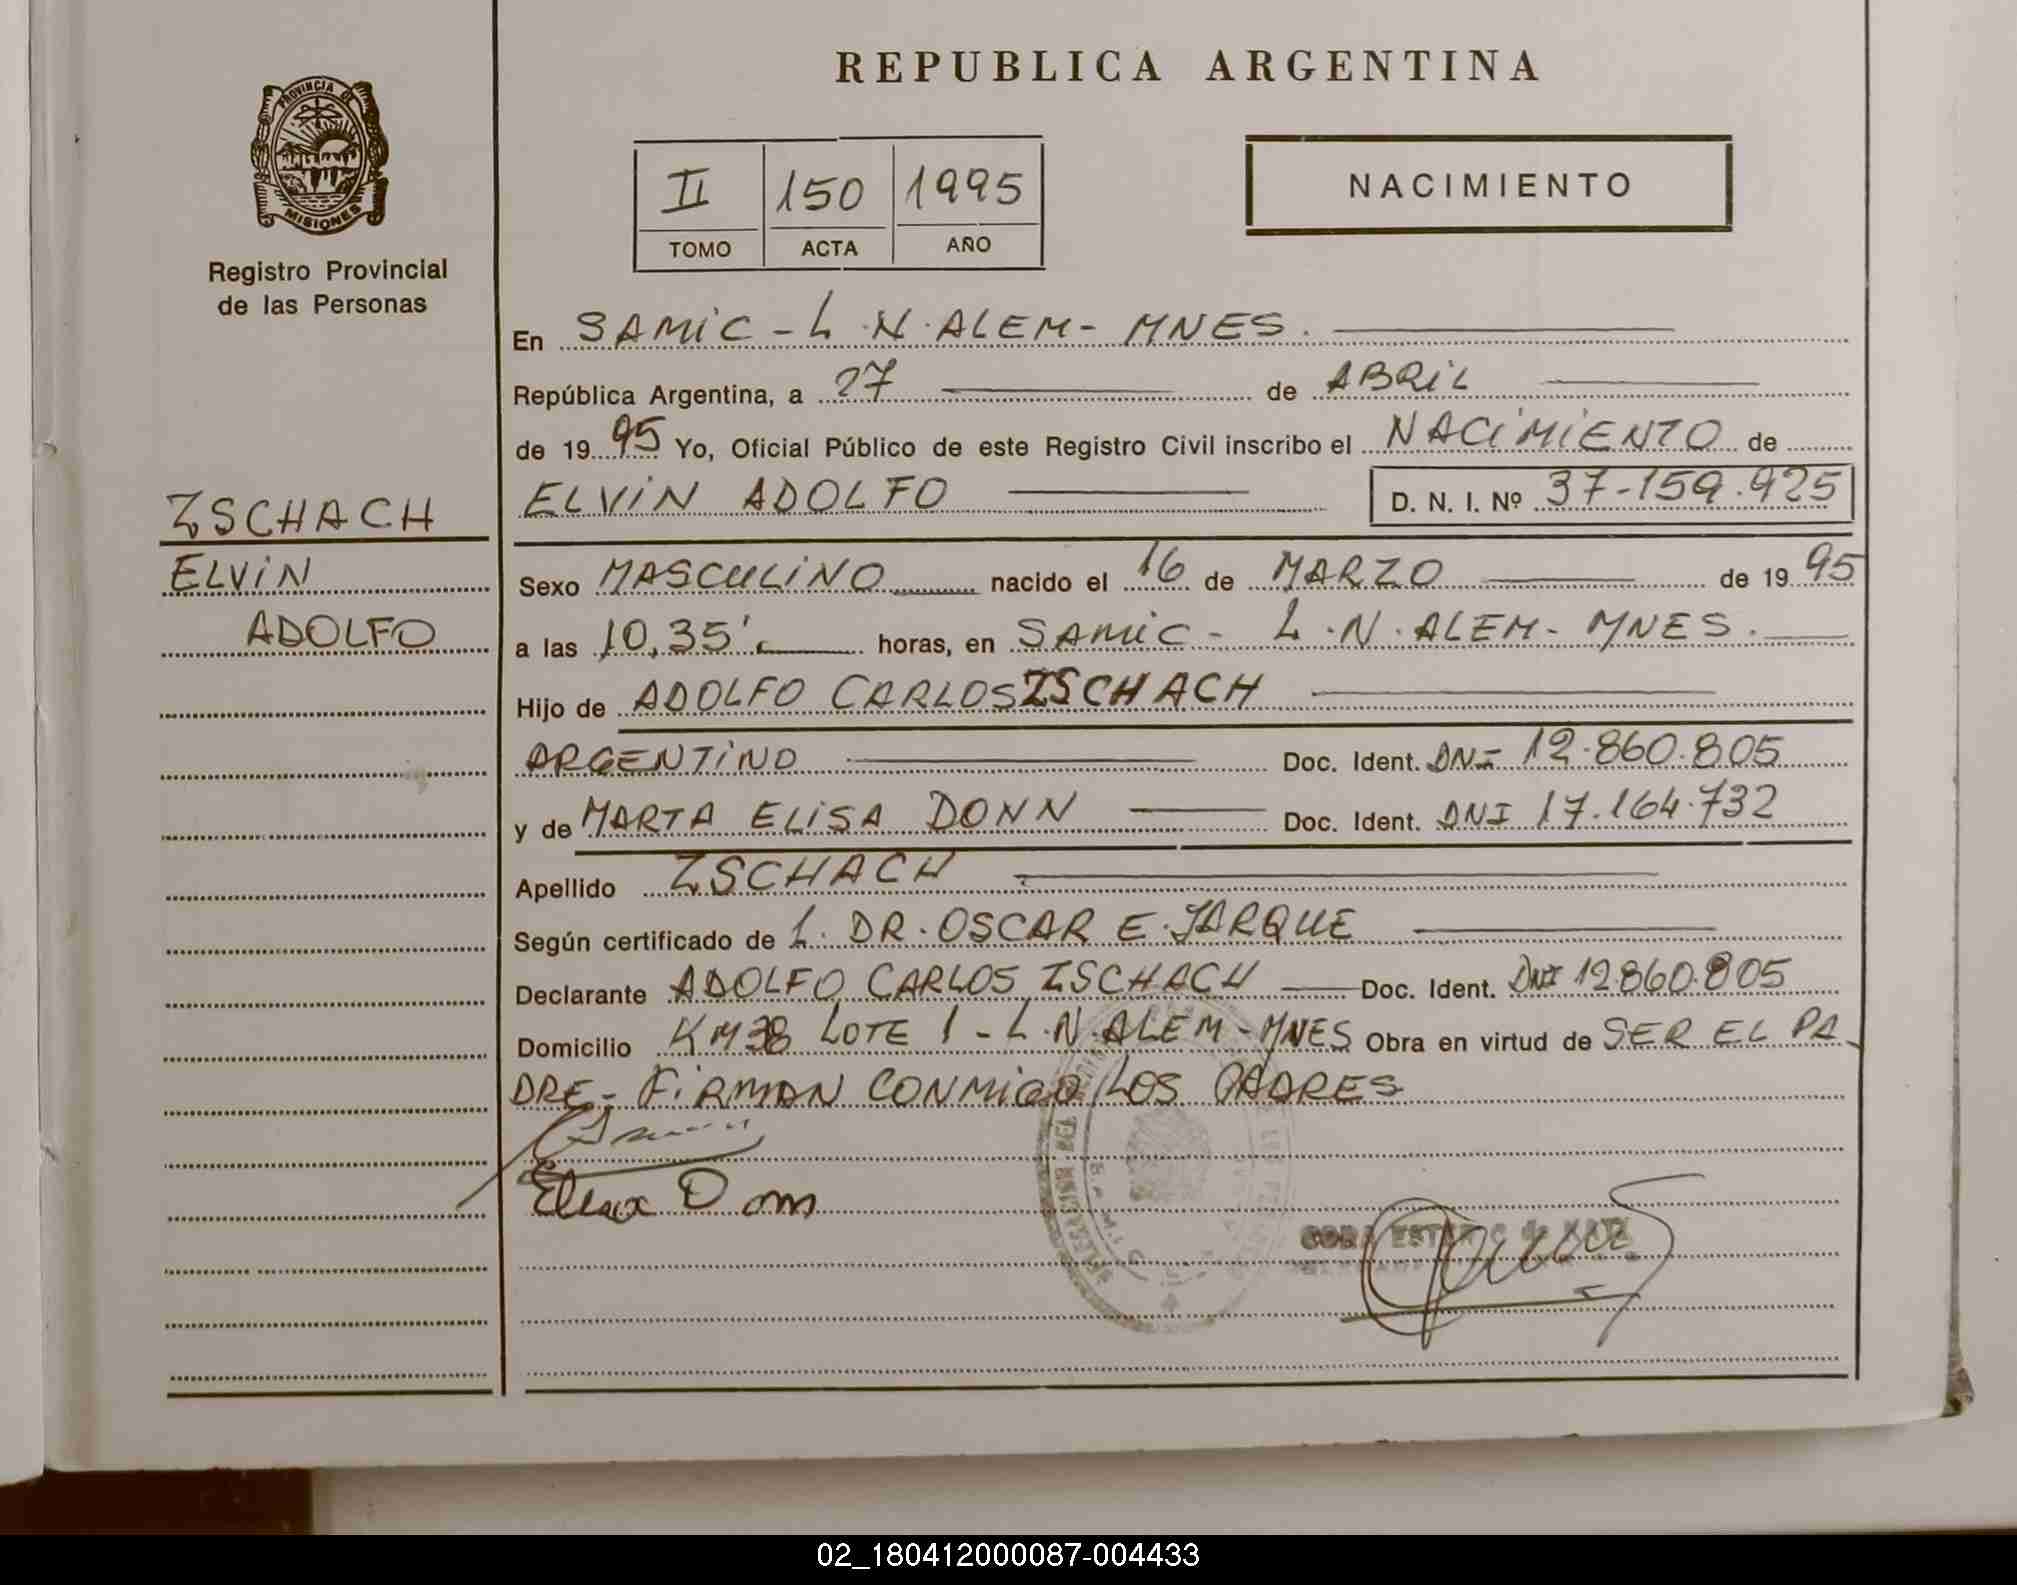 REPUBLICA ARGENTINA
PROVINCIA DE
MISIONES
Registro Provincial
de las Personas
II 150 1995
TOMO ACTA AÑO
NACIMIENTO
En SAMIC - L.N. ALEM - MNES.
República Argentina, a 27 de ABRIL
de 19 95 Yo, Oficial Público de este Registro Civil inscribo el NACIMIENTO de
ELVIN ADOLFO D. N. I. Nº 37-159.925
ZSCHACH
ELVIN
ADOLFO
Sexo MASCULINO nacido el 16 de MARZO de 19 95
a las 10,35' horas, en SAMIC - L.N. ALEM - MNES.
Hijo de ADOLFO CARLOS ZSCHACH
ARGENTINO Doc. Ident. DNI 12.860.805
y de MARTA ELISA DONN Doc. Ident. DNI 17.164.732
Apellido ZSCHACH
Según certificado de L. DR. OSCAR E. JARQUE
Declarante ADOLFO CARLOS ZSCHACH Doc. Ident. DNI 12.860.805
Domicilio KM 38 LOTE 1 - L.N. ALEM - MNES Obra en virtud de SER EL PA
DRE - FIRMAN CONMIGO LOS PADRES
Elisa Donn
02_180412000087-004433